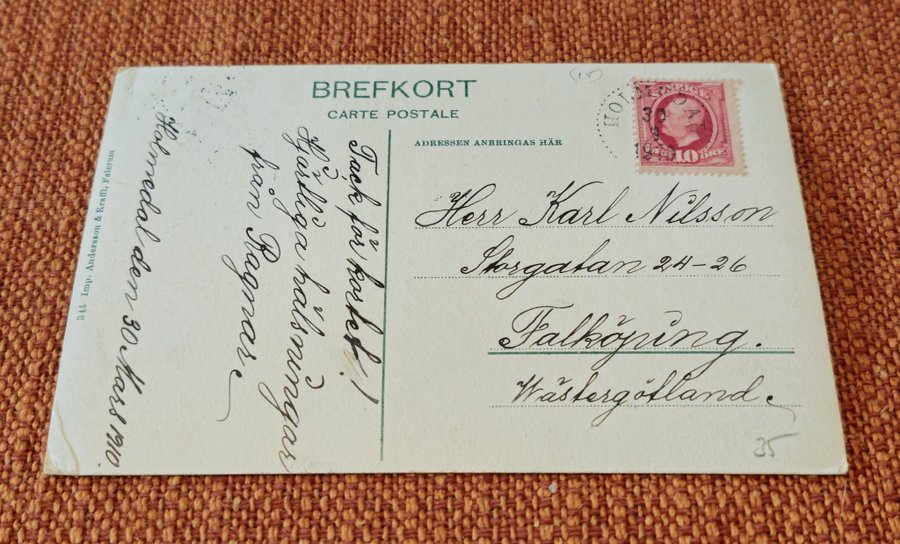 BREFKORT
CARTE POSTALE
ADRESSEN ANBRINGAS HÄR
Herr Karl Nilsson
Storgatan 24-26
Falköping.
Wästergötland.
Tack för kortet!
Hjärtliga hälsningar
från Ragnar
Holmedal den 30 Mars 1910.
344 Imp. Andersson & Krafft, Falerum
30
10 ÖRE
35